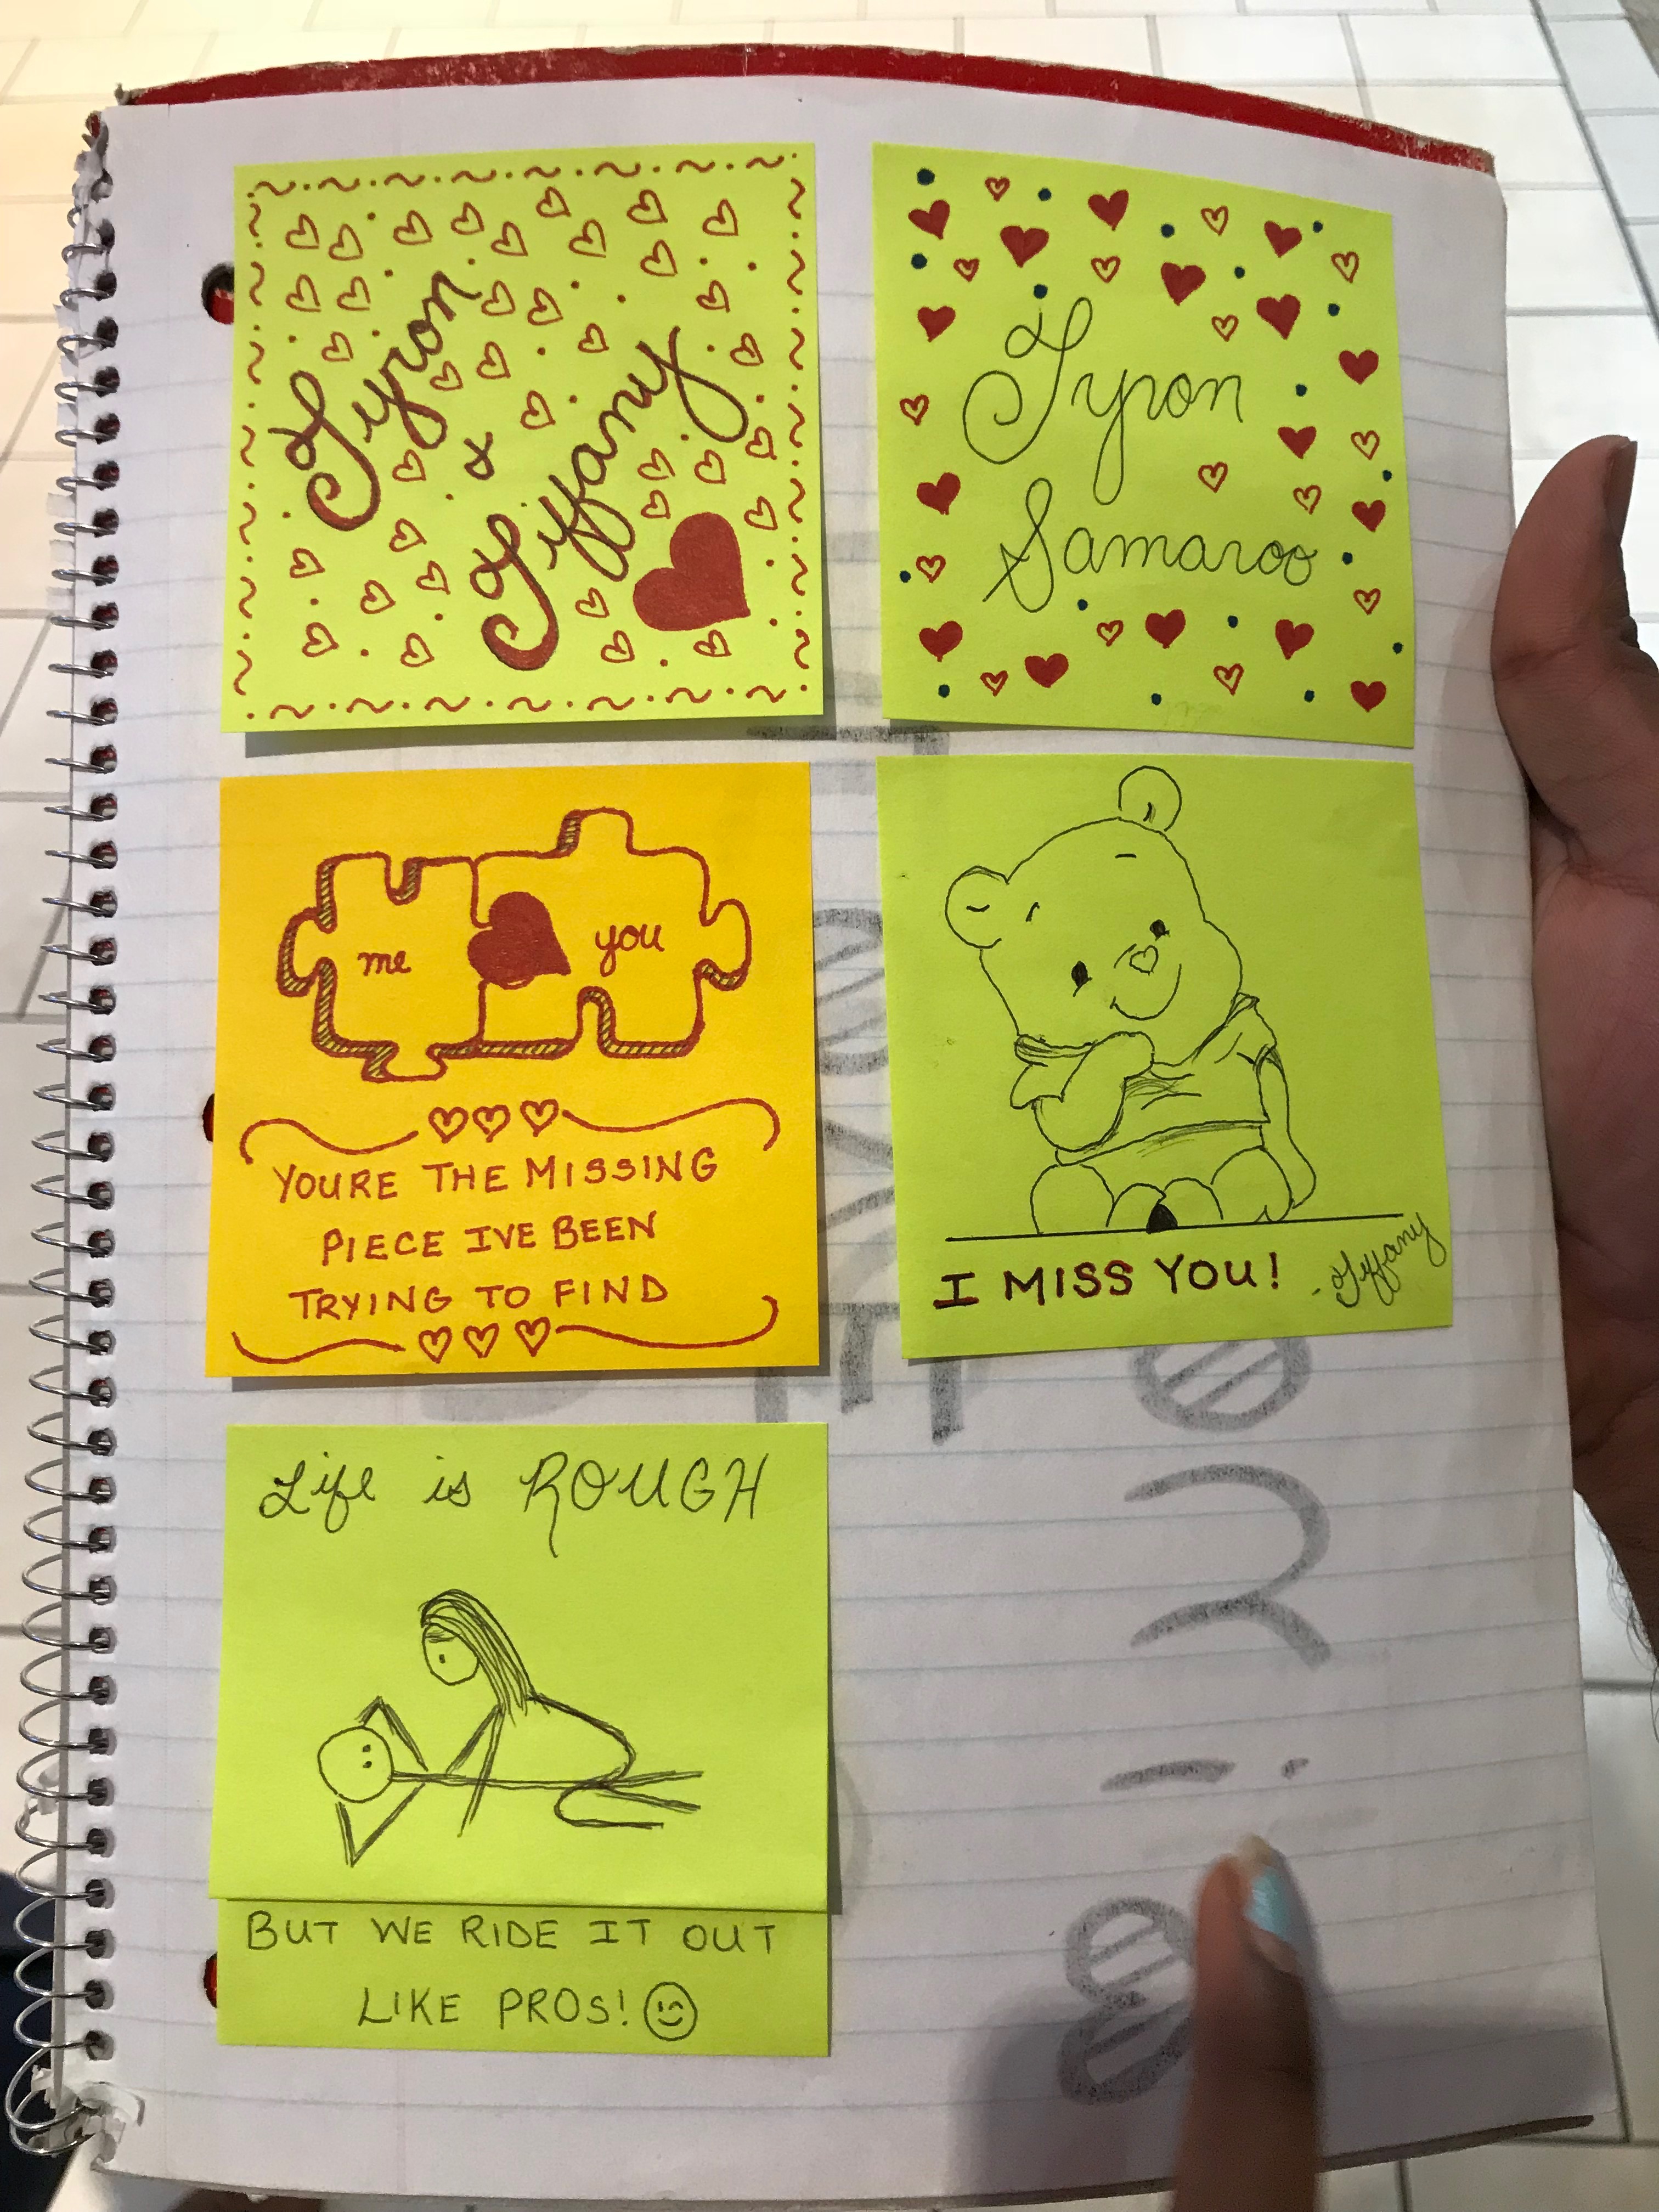 Tyron
x
Tiffany
Tyron
Samaroo
me
you
YOURE THE MISSING
PIECE IVE BEEN
TRYING TO FIND
I MISS YOU!
-Tiffany
Life is ROUGH
BUT WE RIDE IT OUT
LIKE PROS!